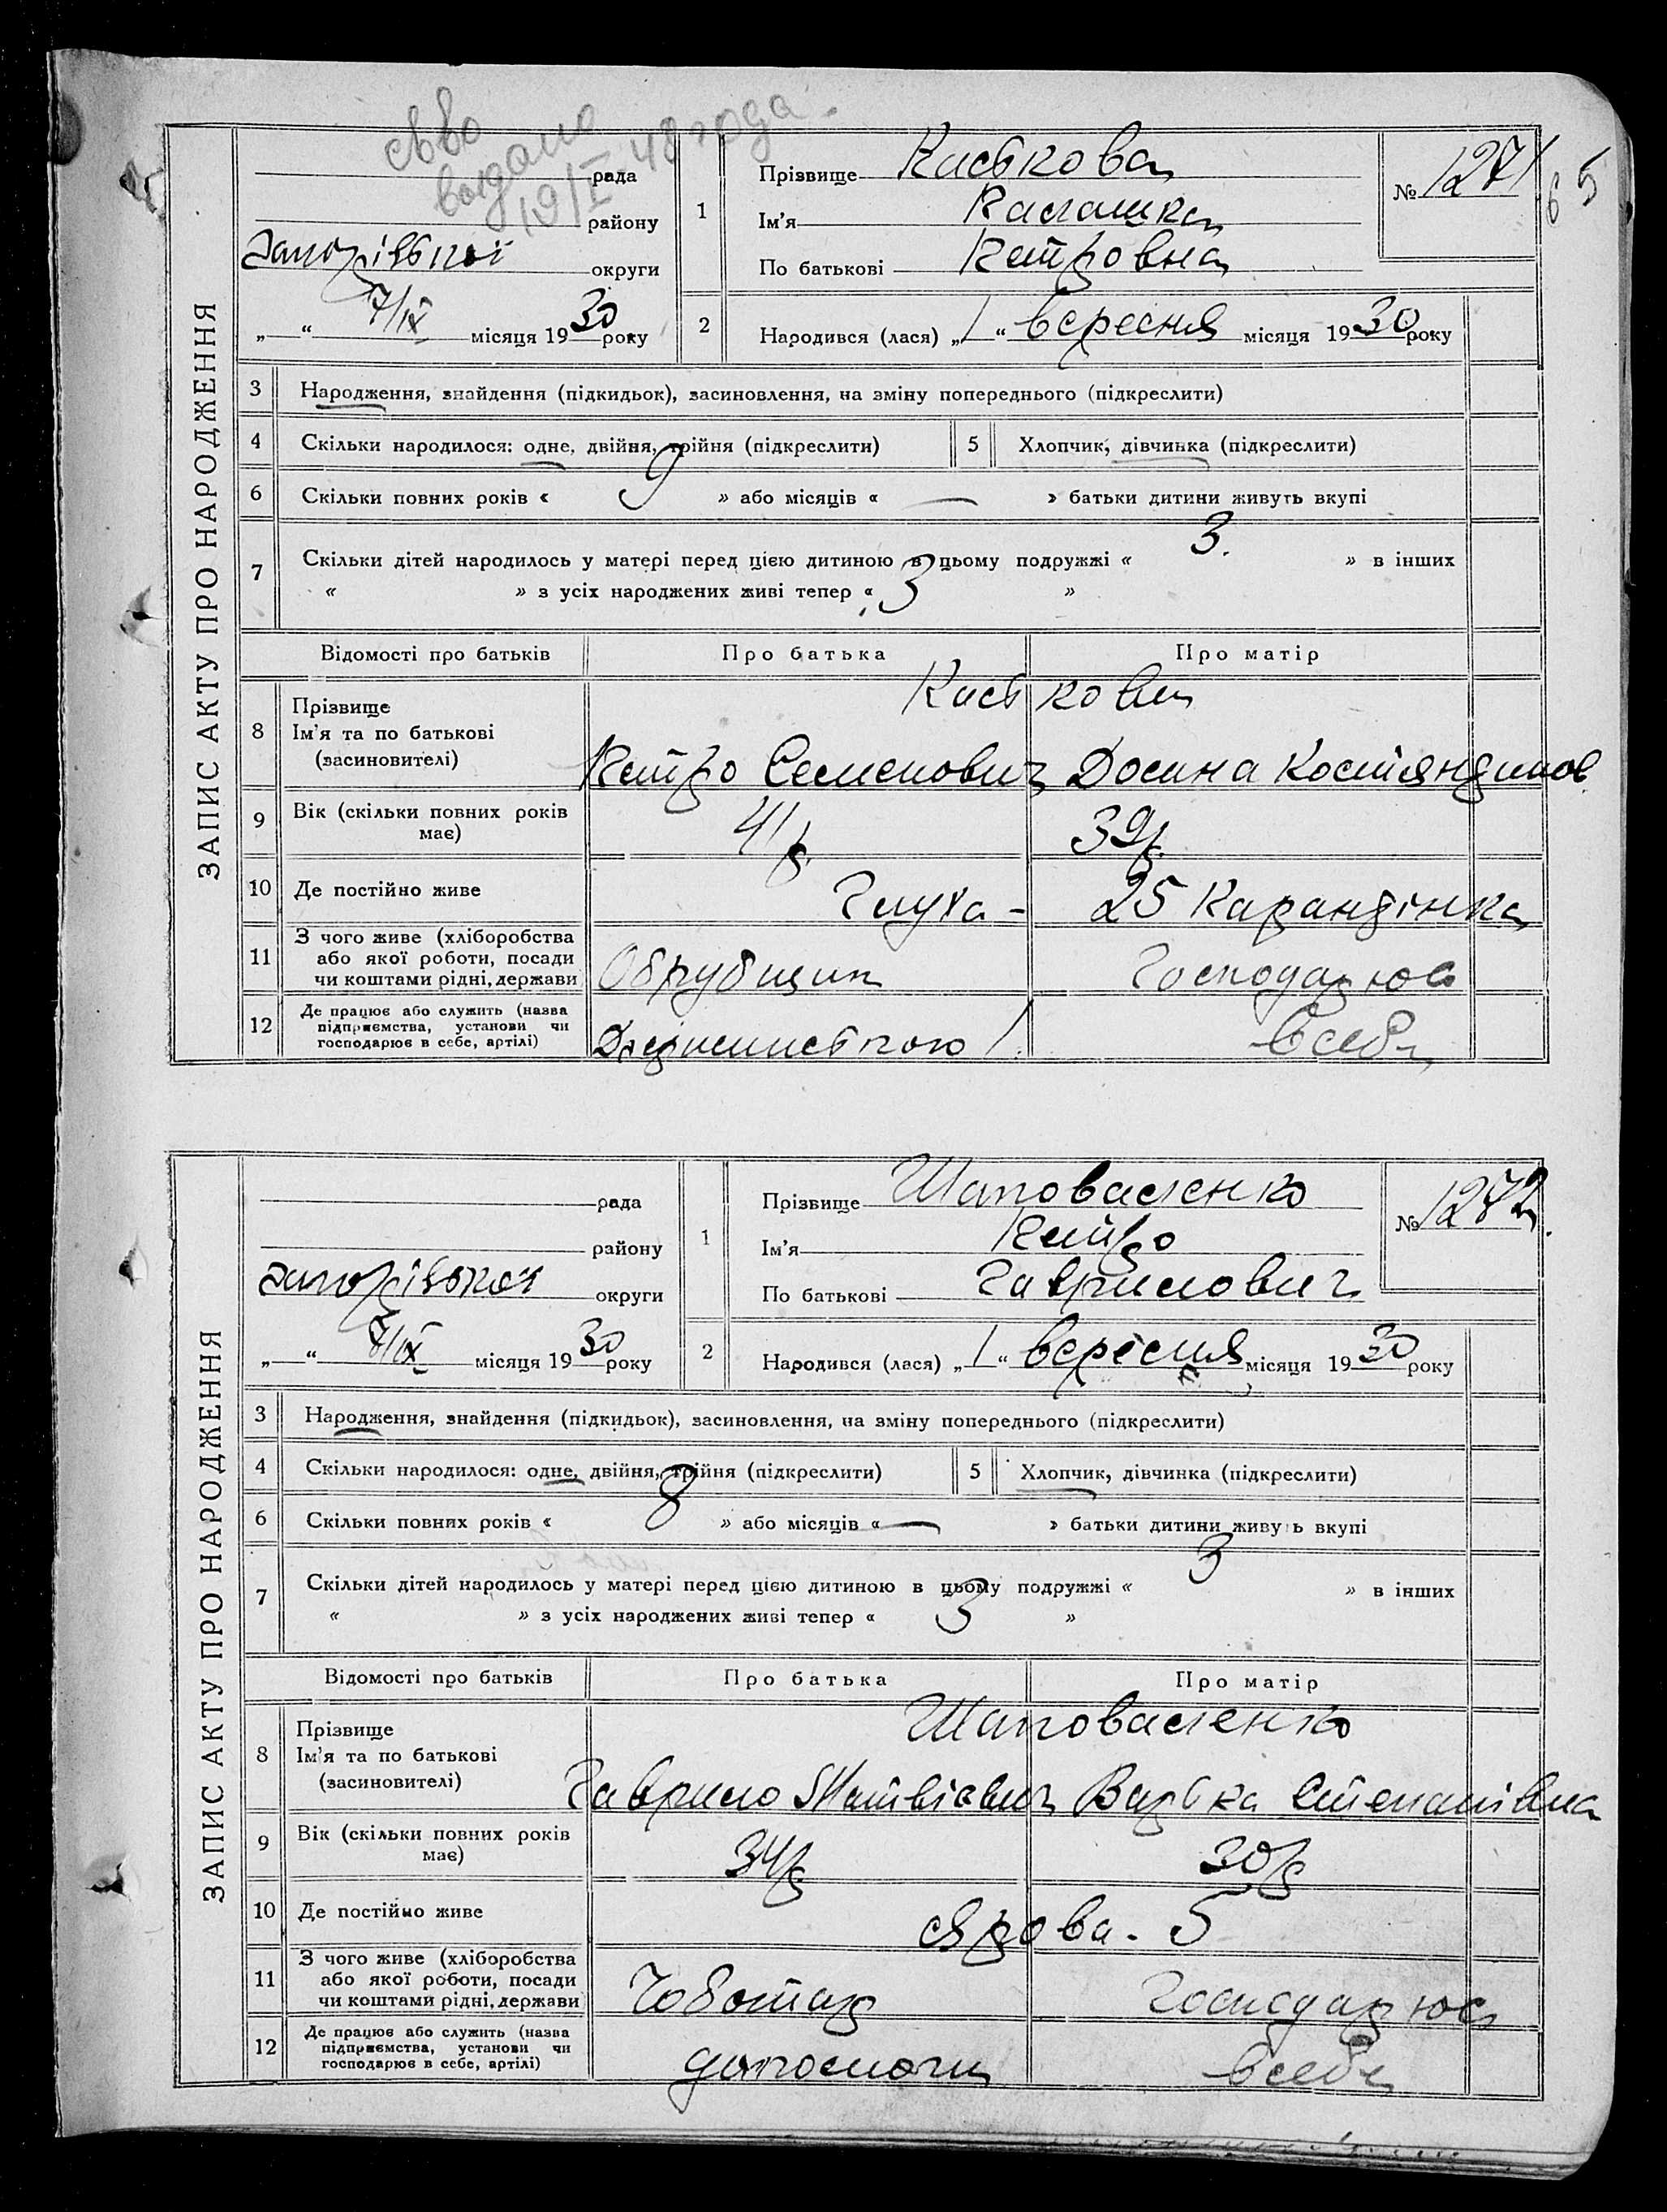 выдано
19/I 48 года.
ЗАПИС АКТУ ПРО НАРОДЖЕННЯ
рада
району
округи
7/IX місяця 1930 року
1
Прізвище
Ім'я
По батькові Петровна
№ 1271
65
2
Народився (лася) „1“ вересня місяця 1930 року
3 Народження, знайдення (підкидьок), засиновлення, на зміну попереднього (підкреслити)
4 Скільки народилося: одне, двійня, трійня (підкреслити) 5 Хлопчик, дівчинка (підкреслити)
6 Скільки повних років « 9 » або місяців « — » батьки дитини живуть вкупі
7 Скільки дітей народилось у матері перед цією дитиною в цьому подружжі « 3. » в інших
« » з усіх народжених живі тепер « 3 »
Відомості про батьків Про батька Про матір
8 Прізвище
Ім'я та по батькові
(засновителі)
Петро Семенович
9 Вік (скільки повних років має) 41 р. 39 р.
10 Де постійно живе Глуха - 25
11 З чого живе (хліборобства або якої роботи, посади чи коштами рідні, держави Обрубщик Господарює
12 Де працює або служить (назва підприємства, установи чи господарює в себе, артілі) в себе
ЗАПИС АКТУ ПРО НАРОДЖЕННЯ
рада
району
округи
7/IX місяця 1930 року
1
Прізвище Шаповаленко
Ім'я Петро
По батькові Гаврилович
№ 1272
2
Народився (лася) „1“ вересня місяця 1930 року
3 Народження, знайдення (підкидьок), засиновлення, на зміну попереднього (підкреслити)
4 Скільки народилося: одне, двійня, трійня (підкреслити) 5 Хлопчик, дівчинка (підкреслити)
6 Скільки повних років « 8 » або місяців « — » батьки дитини живуть вкупі
7 Скільки дітей народилось у матері перед цією дитиною в цьому подружжі « 3 » в інших
« » з усіх народжених живі тепер « 3 »
Відомості про батьків Про батька Про матір
8 Прізвище
Ім'я та по батькові
(засиновителі)
Шаповаленко
Гаврило Матвієвич Варька Степанівна
9 Вік (скільки повних років має) 34 р. 30 р.
10 Де постійно живе Ярова - 5
11 З чого живе (хліборобства або якої роботи, посади чи коштами рідні, держави Чоботар Господарює
12 Де працює або служить (назва підприємства, установи чи господарює в себе, артілі) допомоги в себе